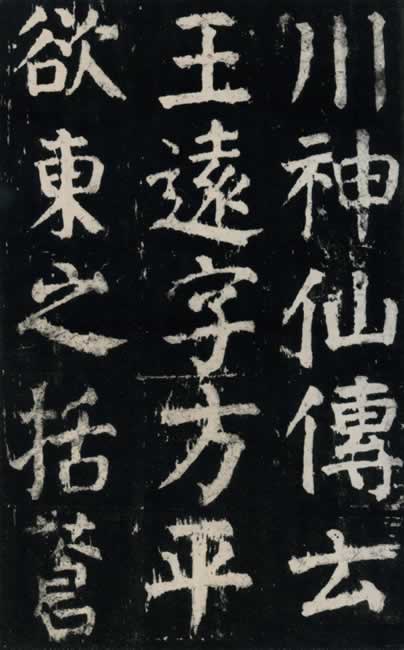 川神仙傳云
王遠字方平
欲東之括蒼